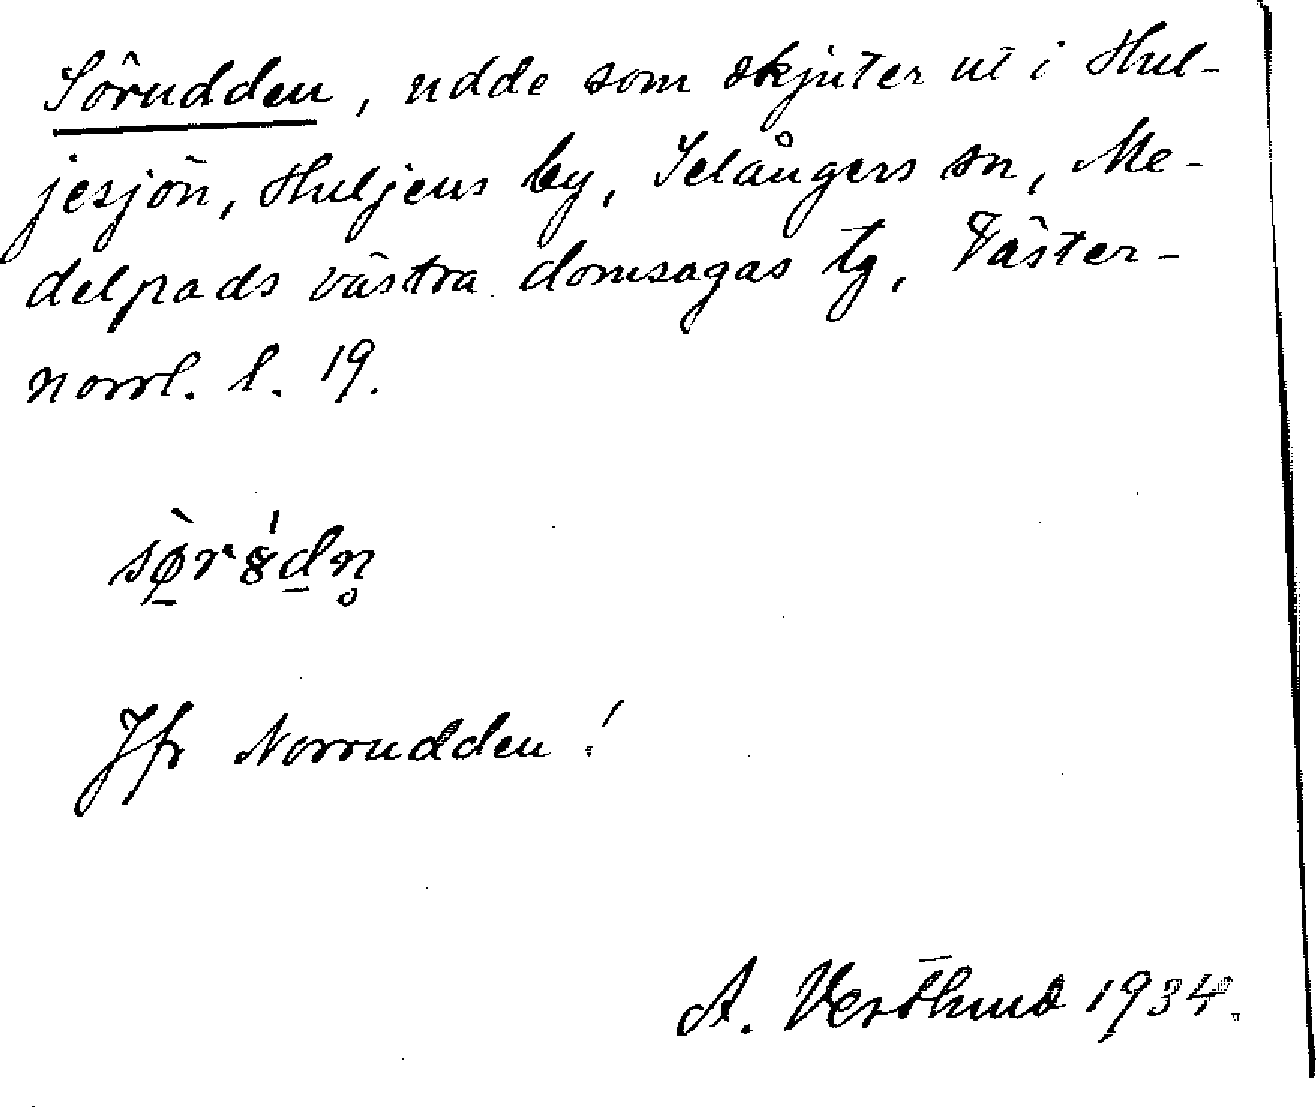 Sörudden, udde som skjuter ut i Hul-
jesjön, Huljens by, Selångers sn, Me-
delpads västra domsagas tg, Väster-
norrl. l. 19.
Jfr Norrudden!
A. Vestlund 1934.